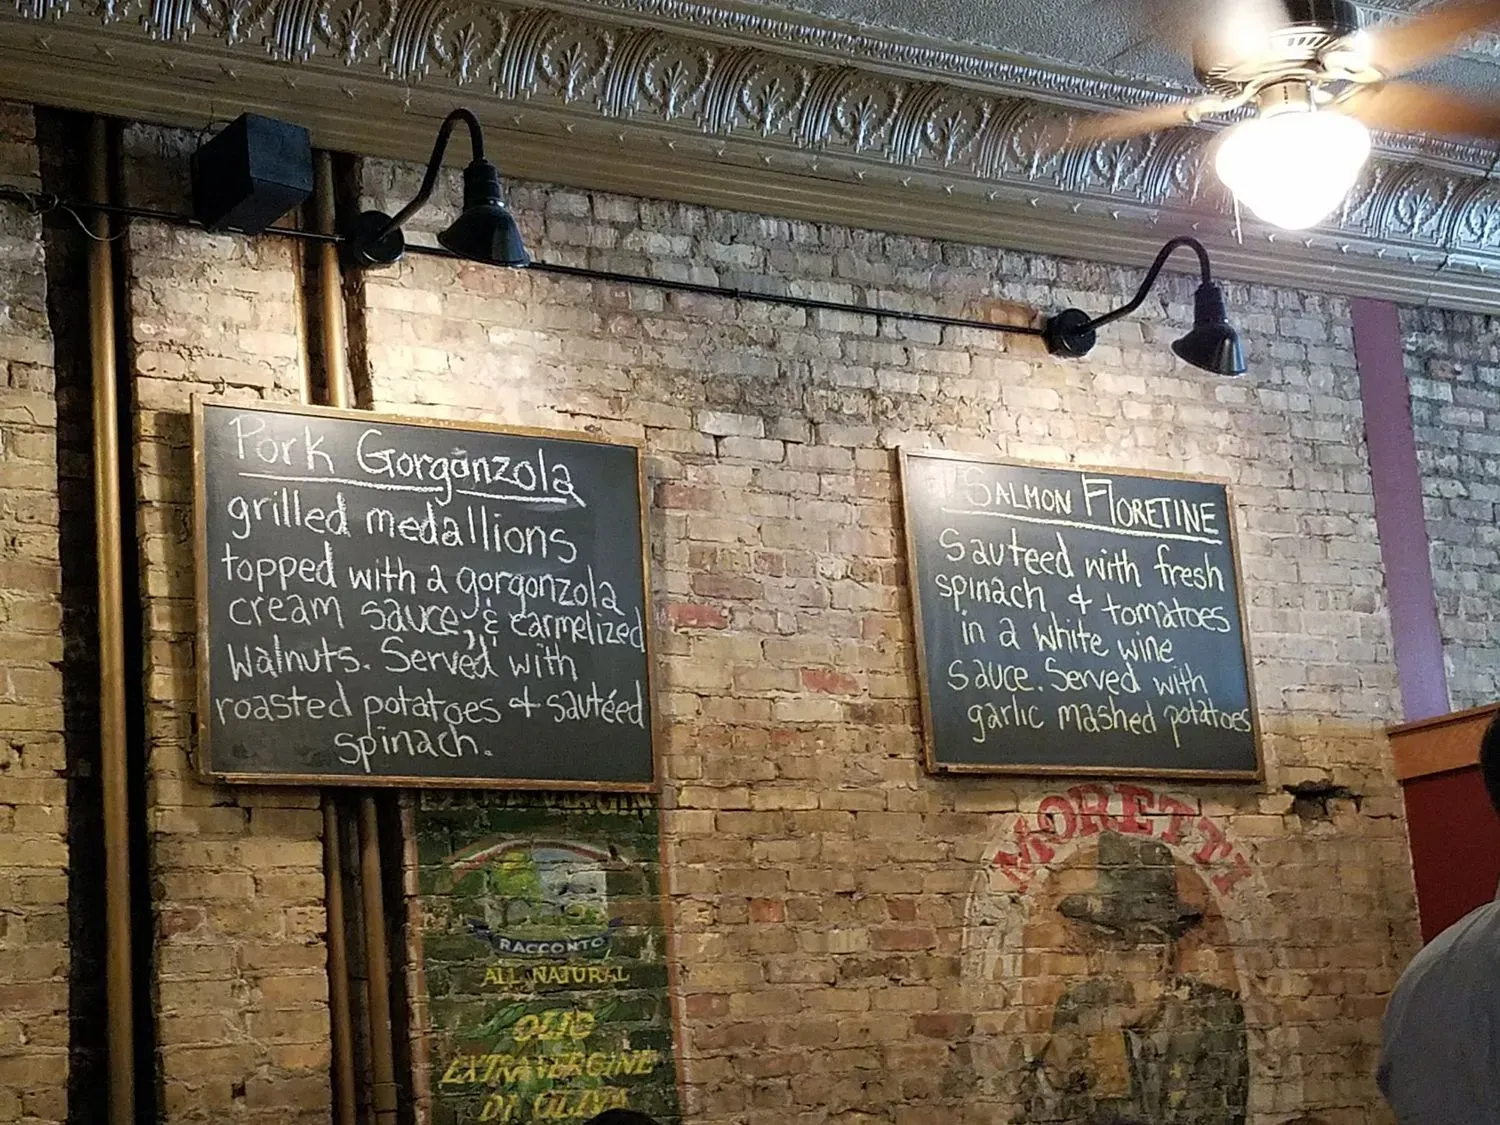 Pork Gorganzola
grilled medallions
topped with a gorgonzola
cream sauce, & carmelized
walnuts. Served with
roasted potatoes & sautéed
spinach.
SALMON FLORETINE
Sauteed with fresh
spinach & tomatoes
in a white wine
sauce. Served with
garlic mashed potatoes
RACCONTO
ALL NATURAL
OLIO
EXTRAVERGINE
DI OLIVA
MORETTI